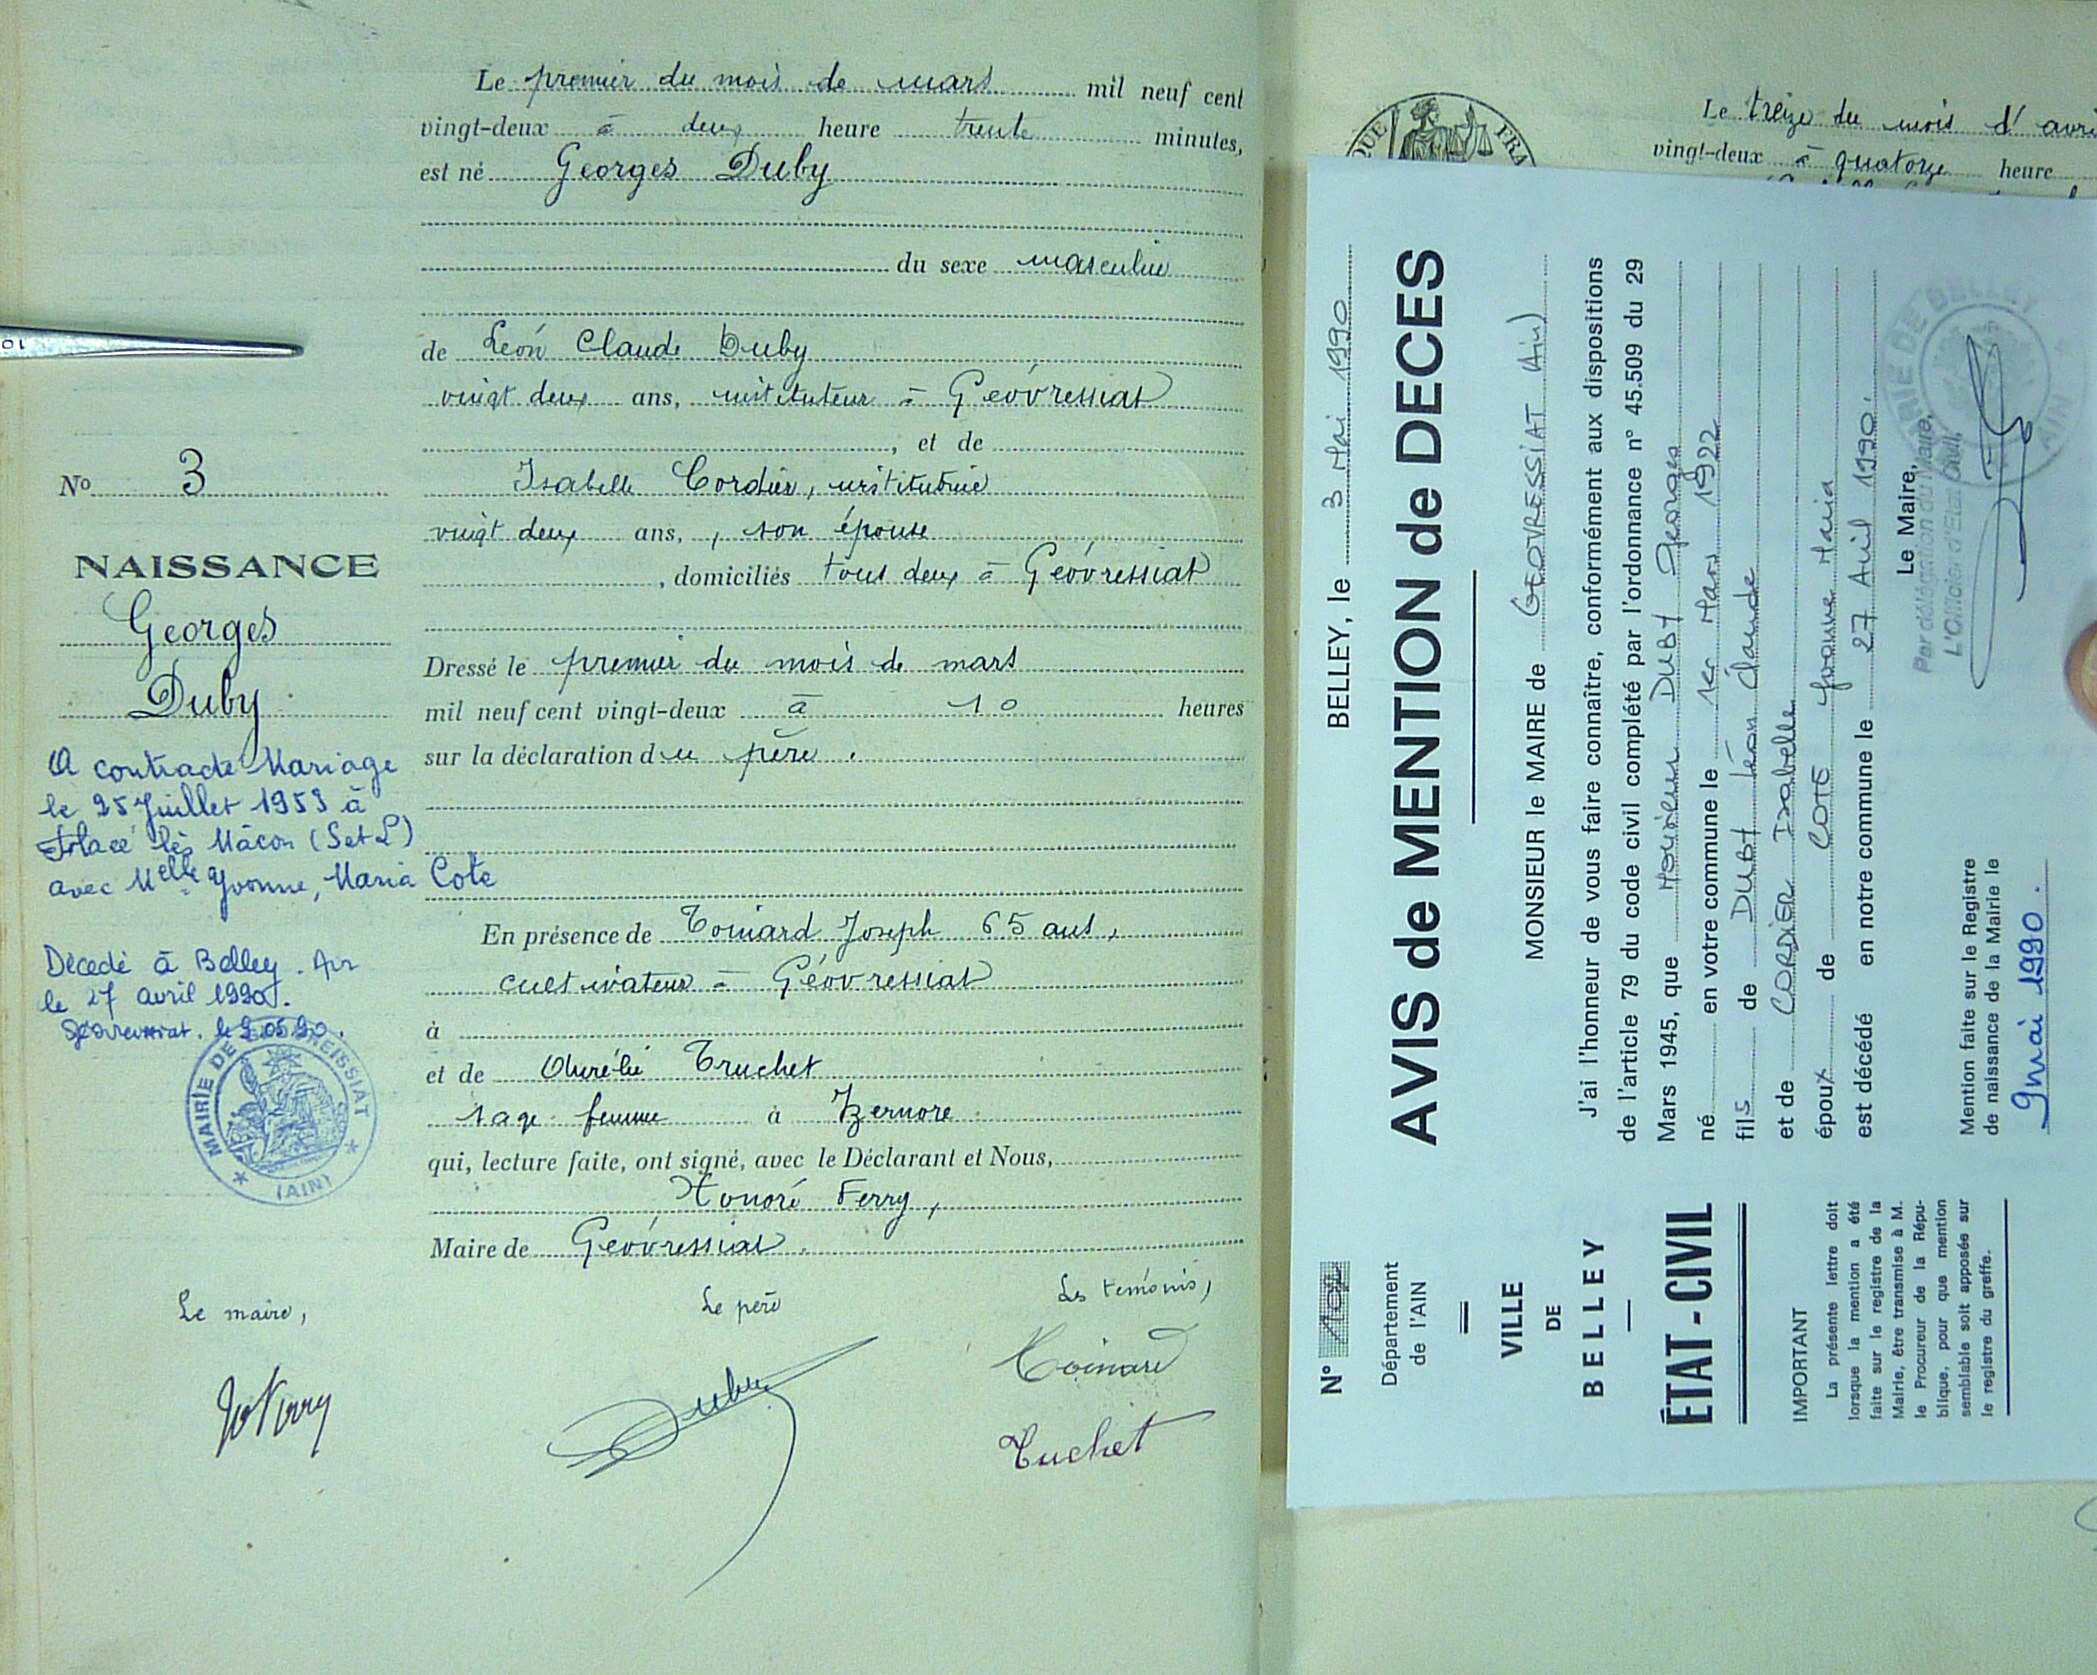 Le premier du mois de mars mil neuf cent
vingt-deux à deux heure trente minutes,
est né Georges Duby
du sexe masculin
de Léon Claude Duby
vingt deux ans, instituteur à Géovressiat
, et de
Isabelle Cordier, institutrice
vingt deux ans, , son épouse
, domiciliés tous deux à Géovressiat
Dressé le premier du mois de mars
mil neuf cent vingt-deux à 10 heures
sur la déclaration du père.
En présence de Toinard Joseph 65 ans,
cultivateur à Géovressiat
à
et de Aurélie Truchet
sage femme à Izernore
qui, lecture faite, ont signé, avec le Déclarant et Nous,
Honoré Ferry,
Maire de Géovressiat.
Le maire,
Le père
Les témoins,
Duby
Toinard
Truchet
No 3
NAISSANCE
Georges
Duby
A contracté Mariage
le 25 Juillet 1953 à
Flacé lès Mâcon (S et L)
avec Melle Yvonne, Maria Cote
Décédé à Belley. Ain
le 27 avril 1990.
Géovressiat. le 9.05.90.
MAIRIE DE GEOVREISSIAT
(AIN)
QUE FRA
Le treize du mois d'avri
vingt-deux à quatorze heure
N°
Département
de l'AIN
VILLE
DE
BELLEY
ÉTAT-CIVIL
IMPORTANT
La présente lettre doit
lorsque la mention a été
faite sur le registre de la
Mairie, être transmise à M.
le Procureur de la Répu-
blique, pour que mention
semblable soit apposée sur
le registre du greffe.
BELLEY, le 3 Mai 1990
AVIS de MENTION de DECES
MONSIEUR le MAIRE de GEOVRESSIAT (Ain)
J'ai l'honneur de vous faire connaître, conformément aux dispositions
de l'article 79 du code civil complété par l'ordonnance n° 45.509 du 29
Mars 1945, que Monsieur DUBY Georges
né en votre commune le 1er Mars 1922
fils de DUBY Léon Claude
et de CORDIER Isabelle
époux de COTE Yvonne Maria
est décédé en notre commune le 27 Avril 1990.
Le Maire,
Par délégation du Maire,
L'Officier d'Etat Civil,
MAIRIE DE BELLEY
AIN
Mention faite sur le Registre
de naissance de la Mairie le
9 mai 1990.